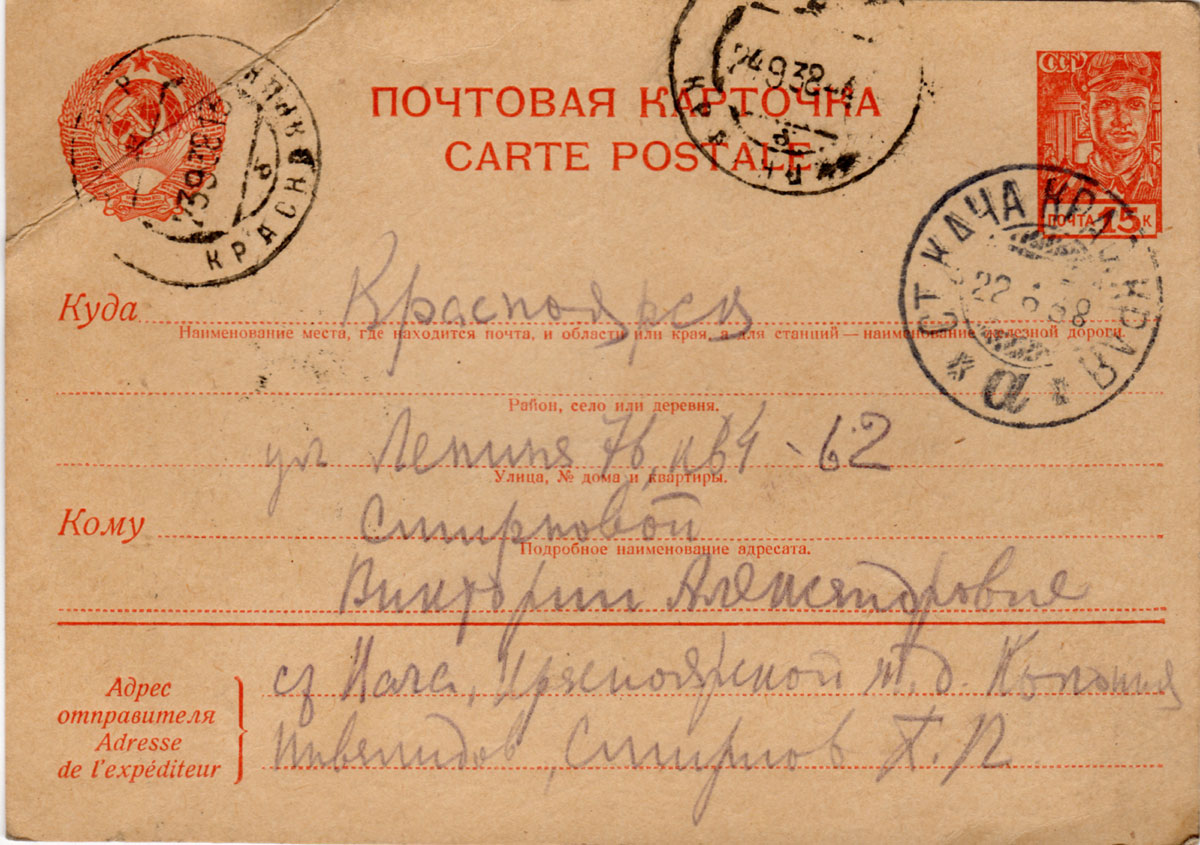 ПОЧТОВАЯ КАРТОЧКА
CARTE POSTALE
СССР
ПОЧТА 15 К
24 9 38
КРАСН
СТ. КАЧА КРА
22 38
Куда Красноярск
Наименование места, где находится почта, и области или края, а для станций — наименование железной дороги.
Район, село или деревня.
ул Ленина 76, кв 4 - 62
Улица, № дома и квартиры.
Кому Смирновой
Подробное наименование адресата.
Виктории Александровне
Адрес отправителя
Adresse de l'expéditeur
ст Кача, Красноярской ж.д. Колония
Инвалидов, Смирнов